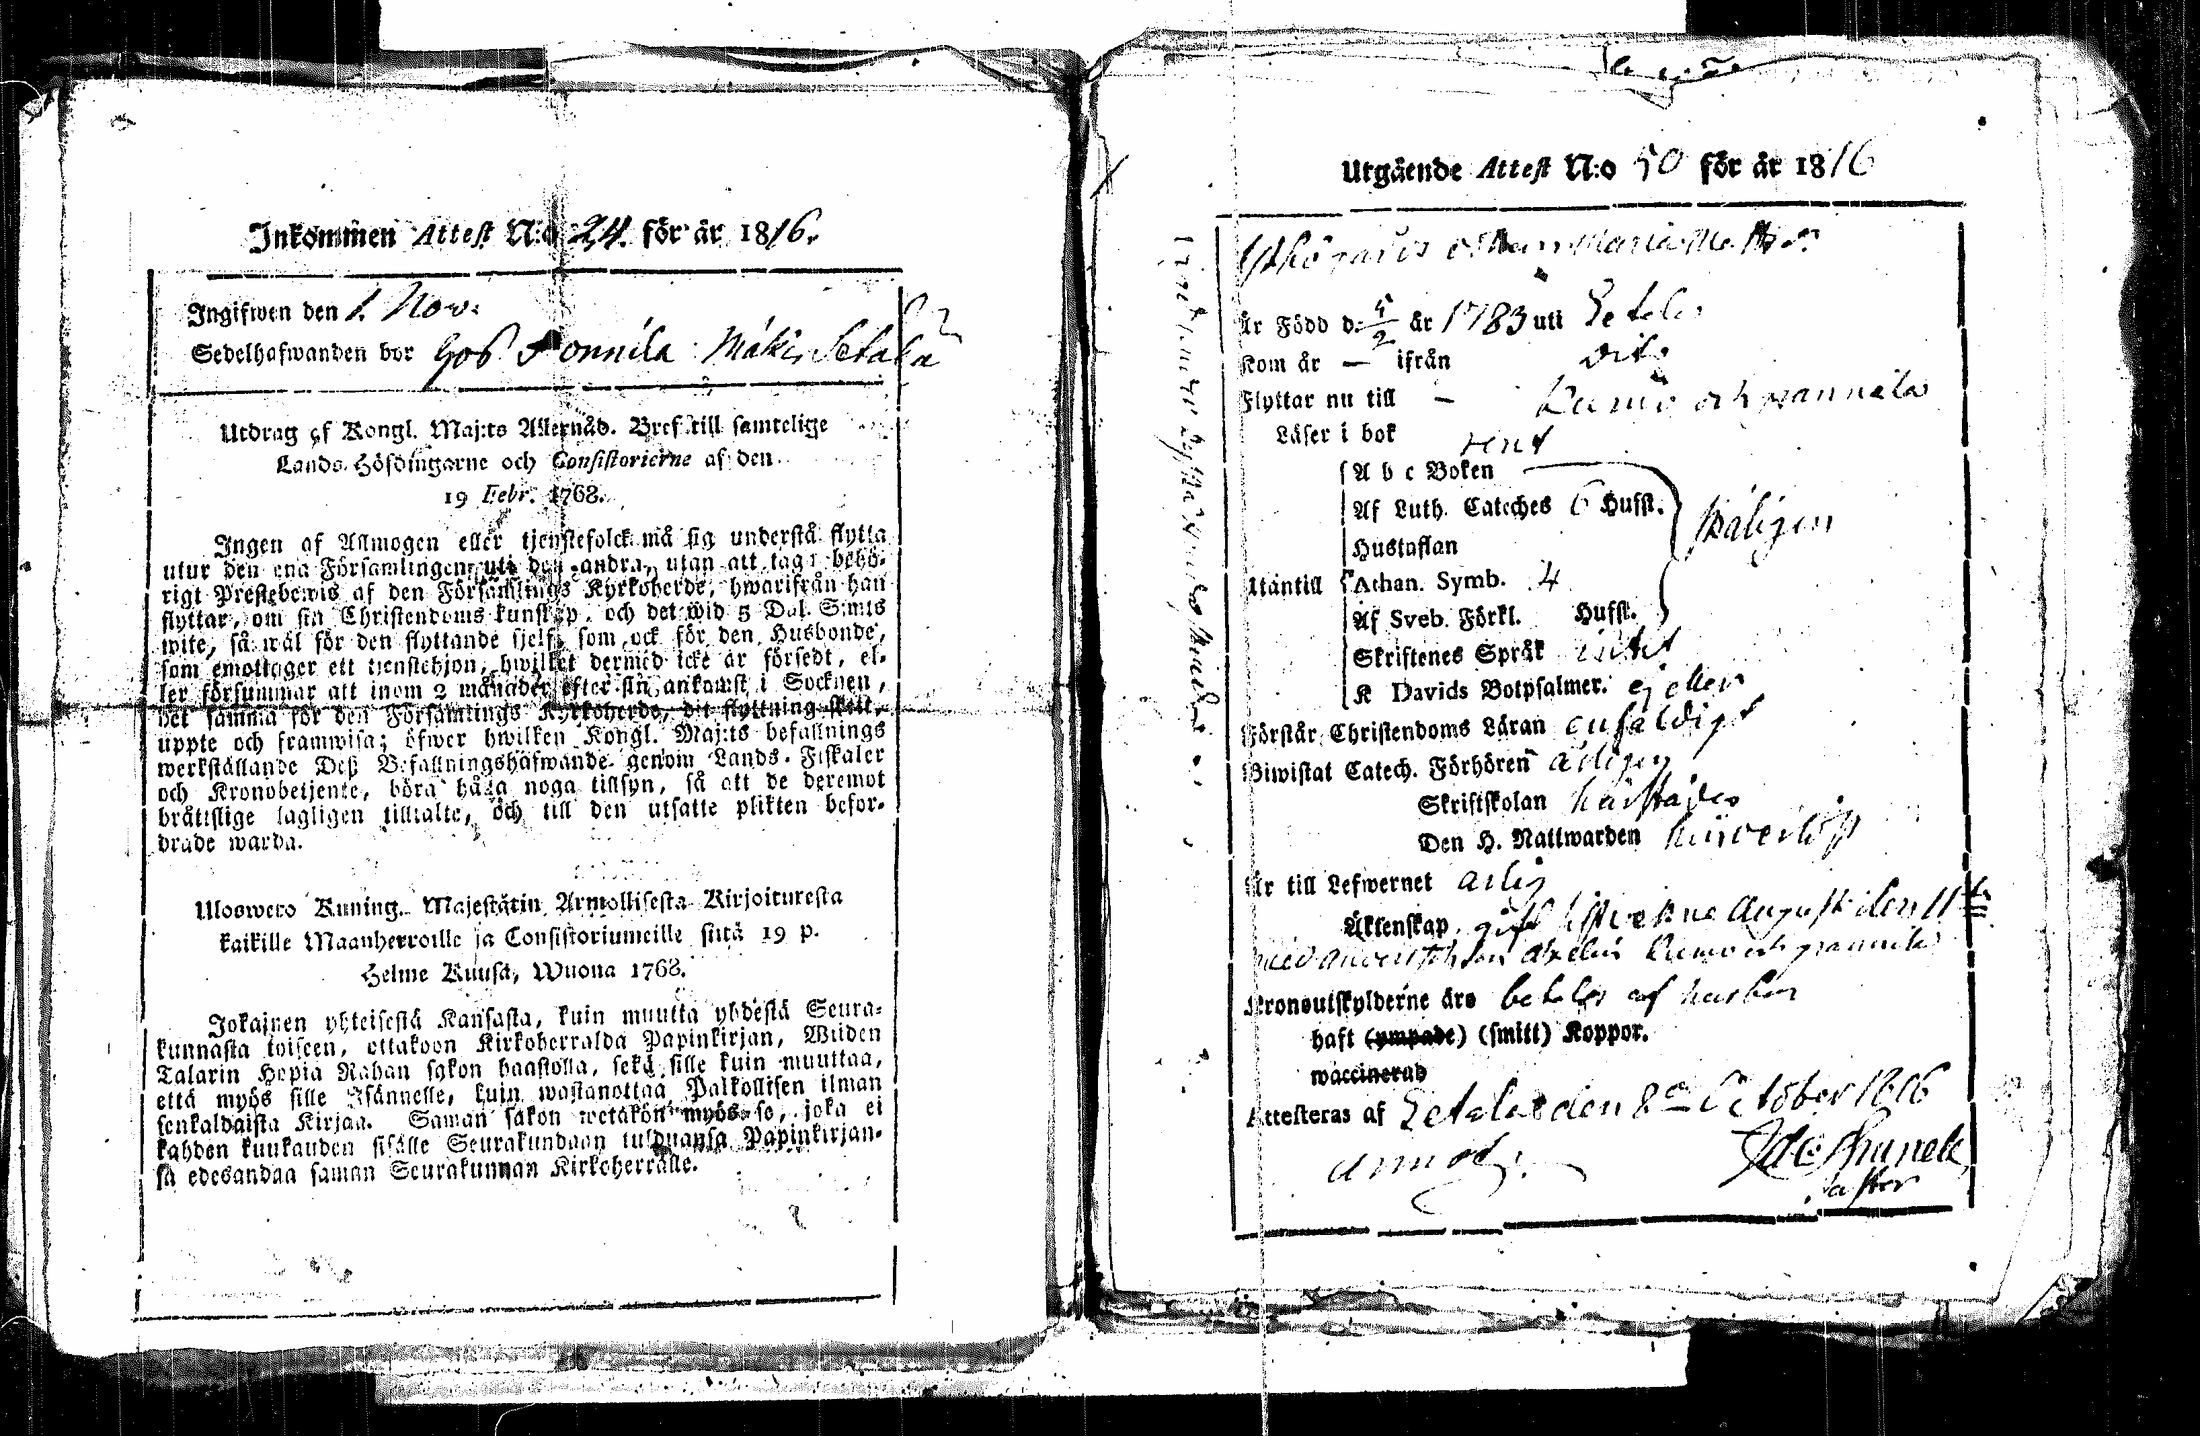 Inkommen Attest N:o 24. för år 1816.
Ingifwen den 1. Nov:
Sedelhafwanden bor hos Mäki Setälä
Utdrag af Kongl. Maj:ts Allernåd. Bref till samtelige
Lands-Höfdingarne och Consistorierne af den
19 Febr. 1768.
Ingen af Allmogen eller tjenstefolck må sig understå flytta
utur den ena Församlingen uti den andra, utan att taga behö-
rigt Prestebewis af den Församlings Kyrkoherde, hwarifrån han
flyttar, om sin Christendoms kunskap, och det wid 5 Dal. S:mts
wite, så wäl för den flyttande sjelf, som ock för den Husbonde,
som emottager ett tjenstehjon, hwilket dermed icke är försedt, el-
ler försummar att inom 2 månader efter sin ankomst i Socknen,
det samma för den Församlings Kyrkoherde, dit flyttning skett,
uppte och framwisa; öfwer hwilken Kongl. Maj:ts befallnings
werkställande Deß Befallningshafwande genom Lands-Fiskaler
och Kronobetjente, böra hålla noga tillsyn, så att de deremot
bråttslige lagligen tilltalte, och till den utsatte plikten befor-
drade warda.
Uloswero Kuning. Majestätin Armollisesta Kirjoituresta
kaikille Maanherroille ja Consistoriumeille siitä 19 p.
Helme Kuusa, Wuona 1768.
Jokainen yhteisestä Kansasta, kuin muutta yhdestä Seura-
kunnasta toiseen, ottakoon Kirkoherralda Papinkirjan, Wiiden
Talarin Hopia Rahan sakon haastolla, sekä sille kuin muuttaa,
että myös sille Isännelle, kuin wastanottaa Palkollisen ilman
senkaldaista Kirjaa. Saman sakon wetäkön myös se, joka ei
kahden kuukauden sisälle Seurakundaan tulduansa Papinkirjan-
sa edesandaa saman Seurakunnan Kirkoherralle.
Utgående Attest N:o 50 för år 1816
Är Född d: 5/2 år 1783 uti Letala
Kom år — ifrån dito
Flyttar nu till — Eumo och
Läser i bok rent
A b c Boken
Af Luth. Cateches 6 Hufst.
Hustaflan
Utantill Athan. Symb. 4
Af Sveb. Förkl. Hufst.
Skriftenes Språk intet
K Davids Botpsalmer. ej eller
Förstår Christendoms Läran enfaldigt
Biwistat Catech. Förhören årligen
Skriftskolan härstädes
Den H. Nattwarden
Är till Lefwernet ärlig
Äktenskap gift August den 11
Kronoutskylderne äro betalas af
haft (ympade) (smitt) Koppor.
waccinerad
Attesteras af Letala den 8 October 1816
Pastor